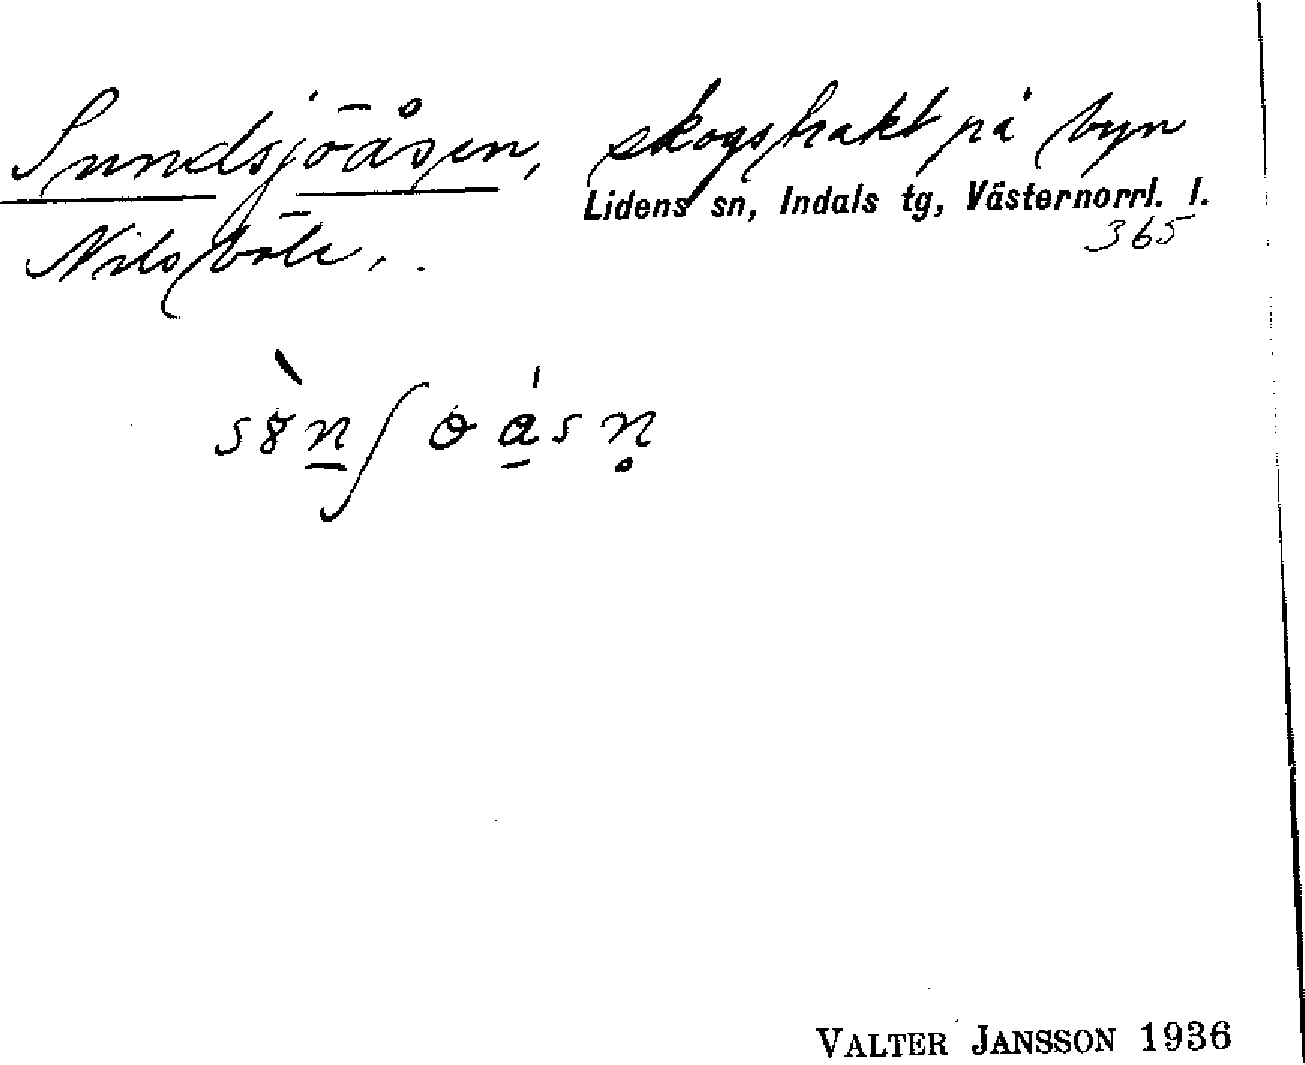 Sundsjöåsen, skogstrakt på byn
Lidens sn, Indals tg, Västernorrl. l.
Nilsböle, .
365
VALTER JANSSON 1936